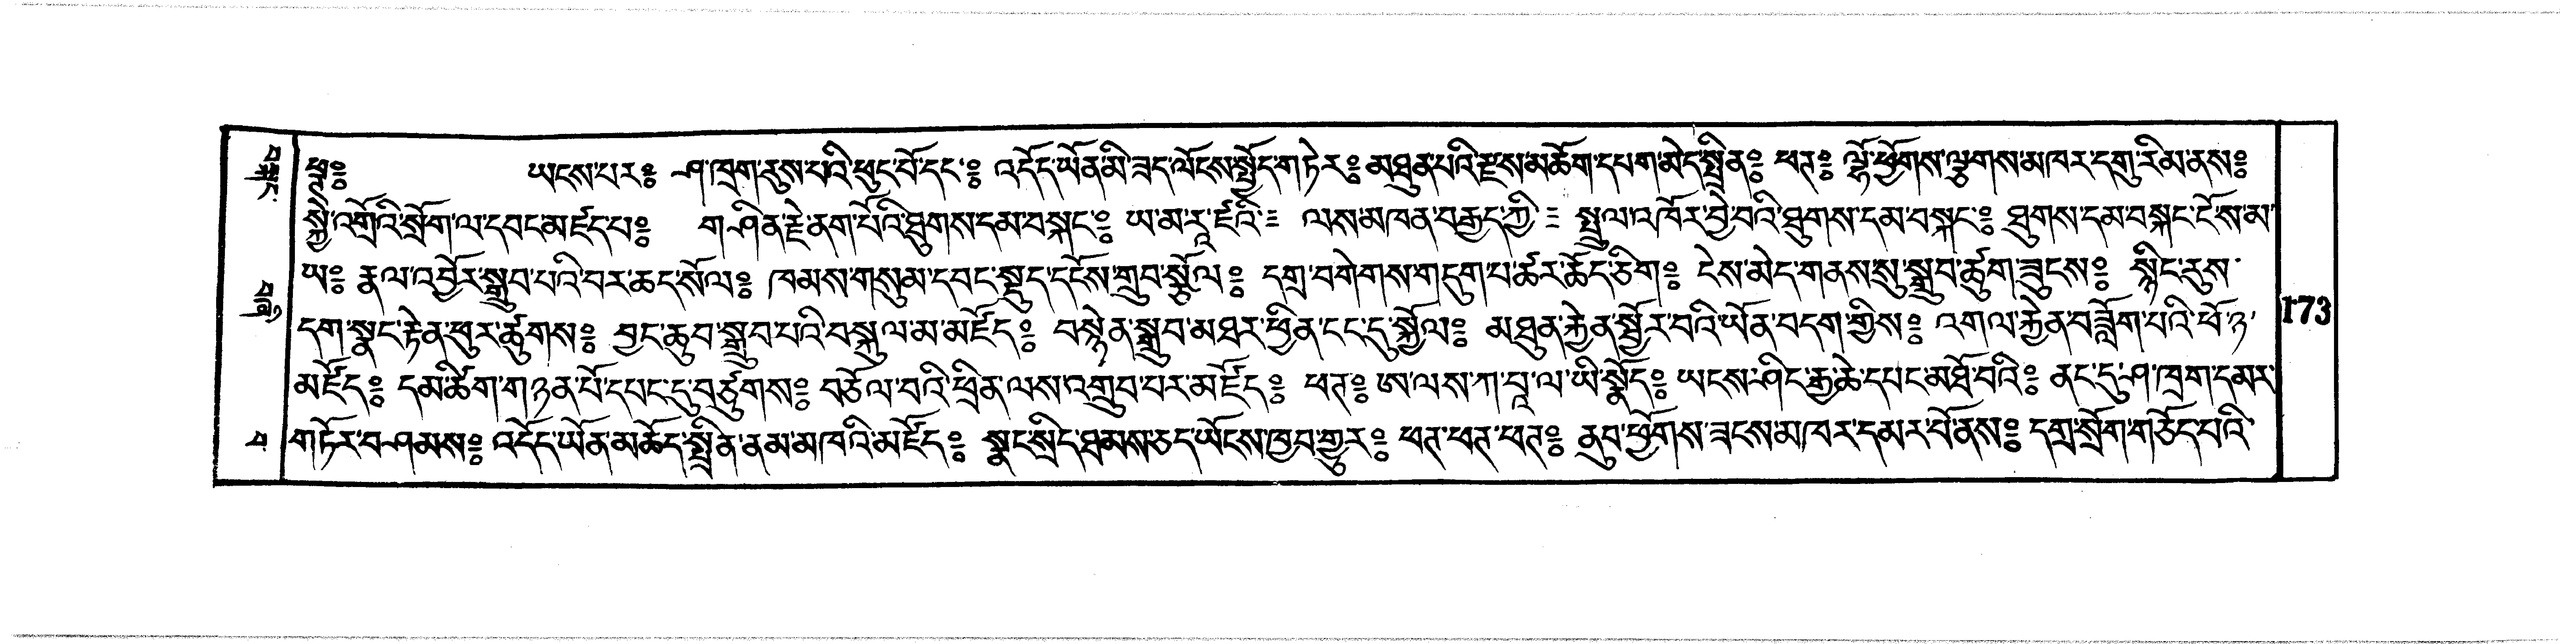 ཕཊ༔ ཡངས་པར༔ ཤ་ཁྲག་རུས་པའི་ཕུང་པོ་དང་༔ འདོད་ཡོན་མི་ཟད་ལོངས་སྤྱོད་གཏེར༔ མཐུན་པའི་རྫས་མཆོག་དཔག་མེད་སྤྲིན༔ ཕཊ༔ ལྷོ་ཕྱོགས་ལྕགས་མཁར་དགུ་རིམ་ནས༔
སྐྱེ་འགྲོའི་སྲོག་ལ་དབང་མཛད་པ༔ གཤིན་རྗེ་ནག་པོའི་ཐུགས་དམ་བསྐང་༔ ཡ་མ་རཱ་ཛའི་༔ ལས་མཁན་བརྒྱད་ཀྱི་༔ སྤྲུལ་འཁོར་བྱེ་བའི་ཐུགས་དམ་བསྐང་༔ ཐུགས་དམ་བསྐང་ངོ་ས་མ་
ཡ༔ རྣལ་འབྱོར་སྒྲུབ་པའི་བར་ཆད་སོལ༔ ཁམས་གསུམ་དབང་སྡུད་དངོས་གྲུབ་སྩོལ༔ དགྲ་བགེགས་གདུག་པ་ཚར་ཆོད་ཅིག༔ ངེས་མེད་གནས་སུ་སྒྲུབ་ཚུག་ཟུངས༔ སྙིང་རུས་
དག་སྣང་རྟེན་ཕུར་ཚུགས༔ བྱང་ཆུབ་སྒྲུབ་པའི་བསྐུལ་མ་མཛོད༔ བསྙེན་སྒྲུབ་མཐར་ཕྱིན་ངང་དུ་སྐྱོལ༔ མཐུན་རྐྱེན་སྦྱོར་བའི་ཡོན་བདག་གྱིས༔ འགལ་རྐྱེན་བཟློག་པའི་ཕོ་ཉ་
མཛོད༔ དམ་ཚིག་གཉན་པོ་དཔང་དུ་བཙུགས༔ བཅོལ་བའི་ཕྲིན་ལས་འགྲུབ་པར་མཛོད༔ ཕཊ༔ ཨ་ལས་ཀ་པཱ་ལ་ཡི་སྣོད༔ ཡངས་ཤིང་རྒྱ་ཆེ་དཔང་མཐོ་བའི༔ ནང་དུ་ཤ་ཁྲག་དམར་
གཏོར་བཤམས༔ འདོད་ཡོན་མཆོད་སྤྲིན་ནམ་མཁའི་མཛོད༔ སྣང་སྲིད་ཐམས་ཅད་ཡོངས་ཁྱབ་གྱུར༔ ཕཊ་ཕཊ་ཕཊ༔ ནུབ་ཕྱོགས་ཟངས་མཁར་དམར་པོ་ནས༔ དགྲ་སྲོག་གཅོད་པའི་
173